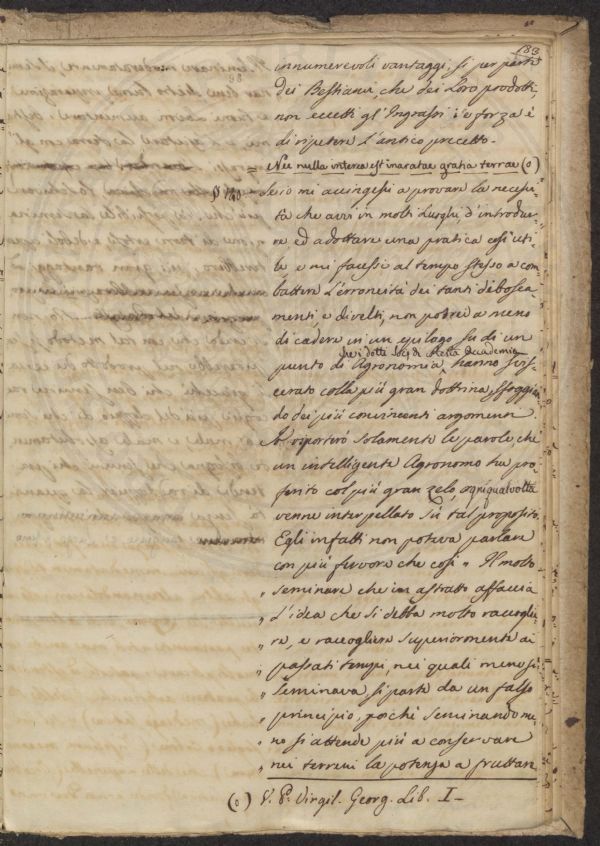 183
innumerevoli vantaggi, si per parte
dei Bestiami, che dei Loro prodotti,
non eccetti gl' Ingrassi: e forza è
di ripetere l'antico precetto.
= Nec nulla interea est inaratae gratia terrae (o)
§ 140 Se io mi accingessi a provare la necessi-
tà che avvi in molti Luoghi d'introdur-
re ed adottare una pratica così uti-
le e mi facessi al tempo stesso a com
battere l'erroneità dei tanti disbosca-
menti, e divelti, non potrei a meno
di cadere in un epilogo su di un
punto di Agronomia, hanno svis-
cerato colla più gran dottrina, sfoggian
do dei più convincenti argomenti
riporterò solamente le parole, che
un intelligente Agronomo ha pro-
ferito col più gran zelo, ogniqualvolta
venne interpellato su tal proposito.
Egli infatti non poteva parlare
con più fervore che così " Il molto
" seminare che in astratto affaccia
" l'idea che si debba molto raccoglie
" re, e raccogliere superiormente ai
" passati tempi, nei quali meno si
" seminava, si parte da un falso
" principio, poichè seminando me
" no si attende più a conservare
" nei terreni la potenza a fruttare
(o) V. P. Virgil. Georg. Lib. I-